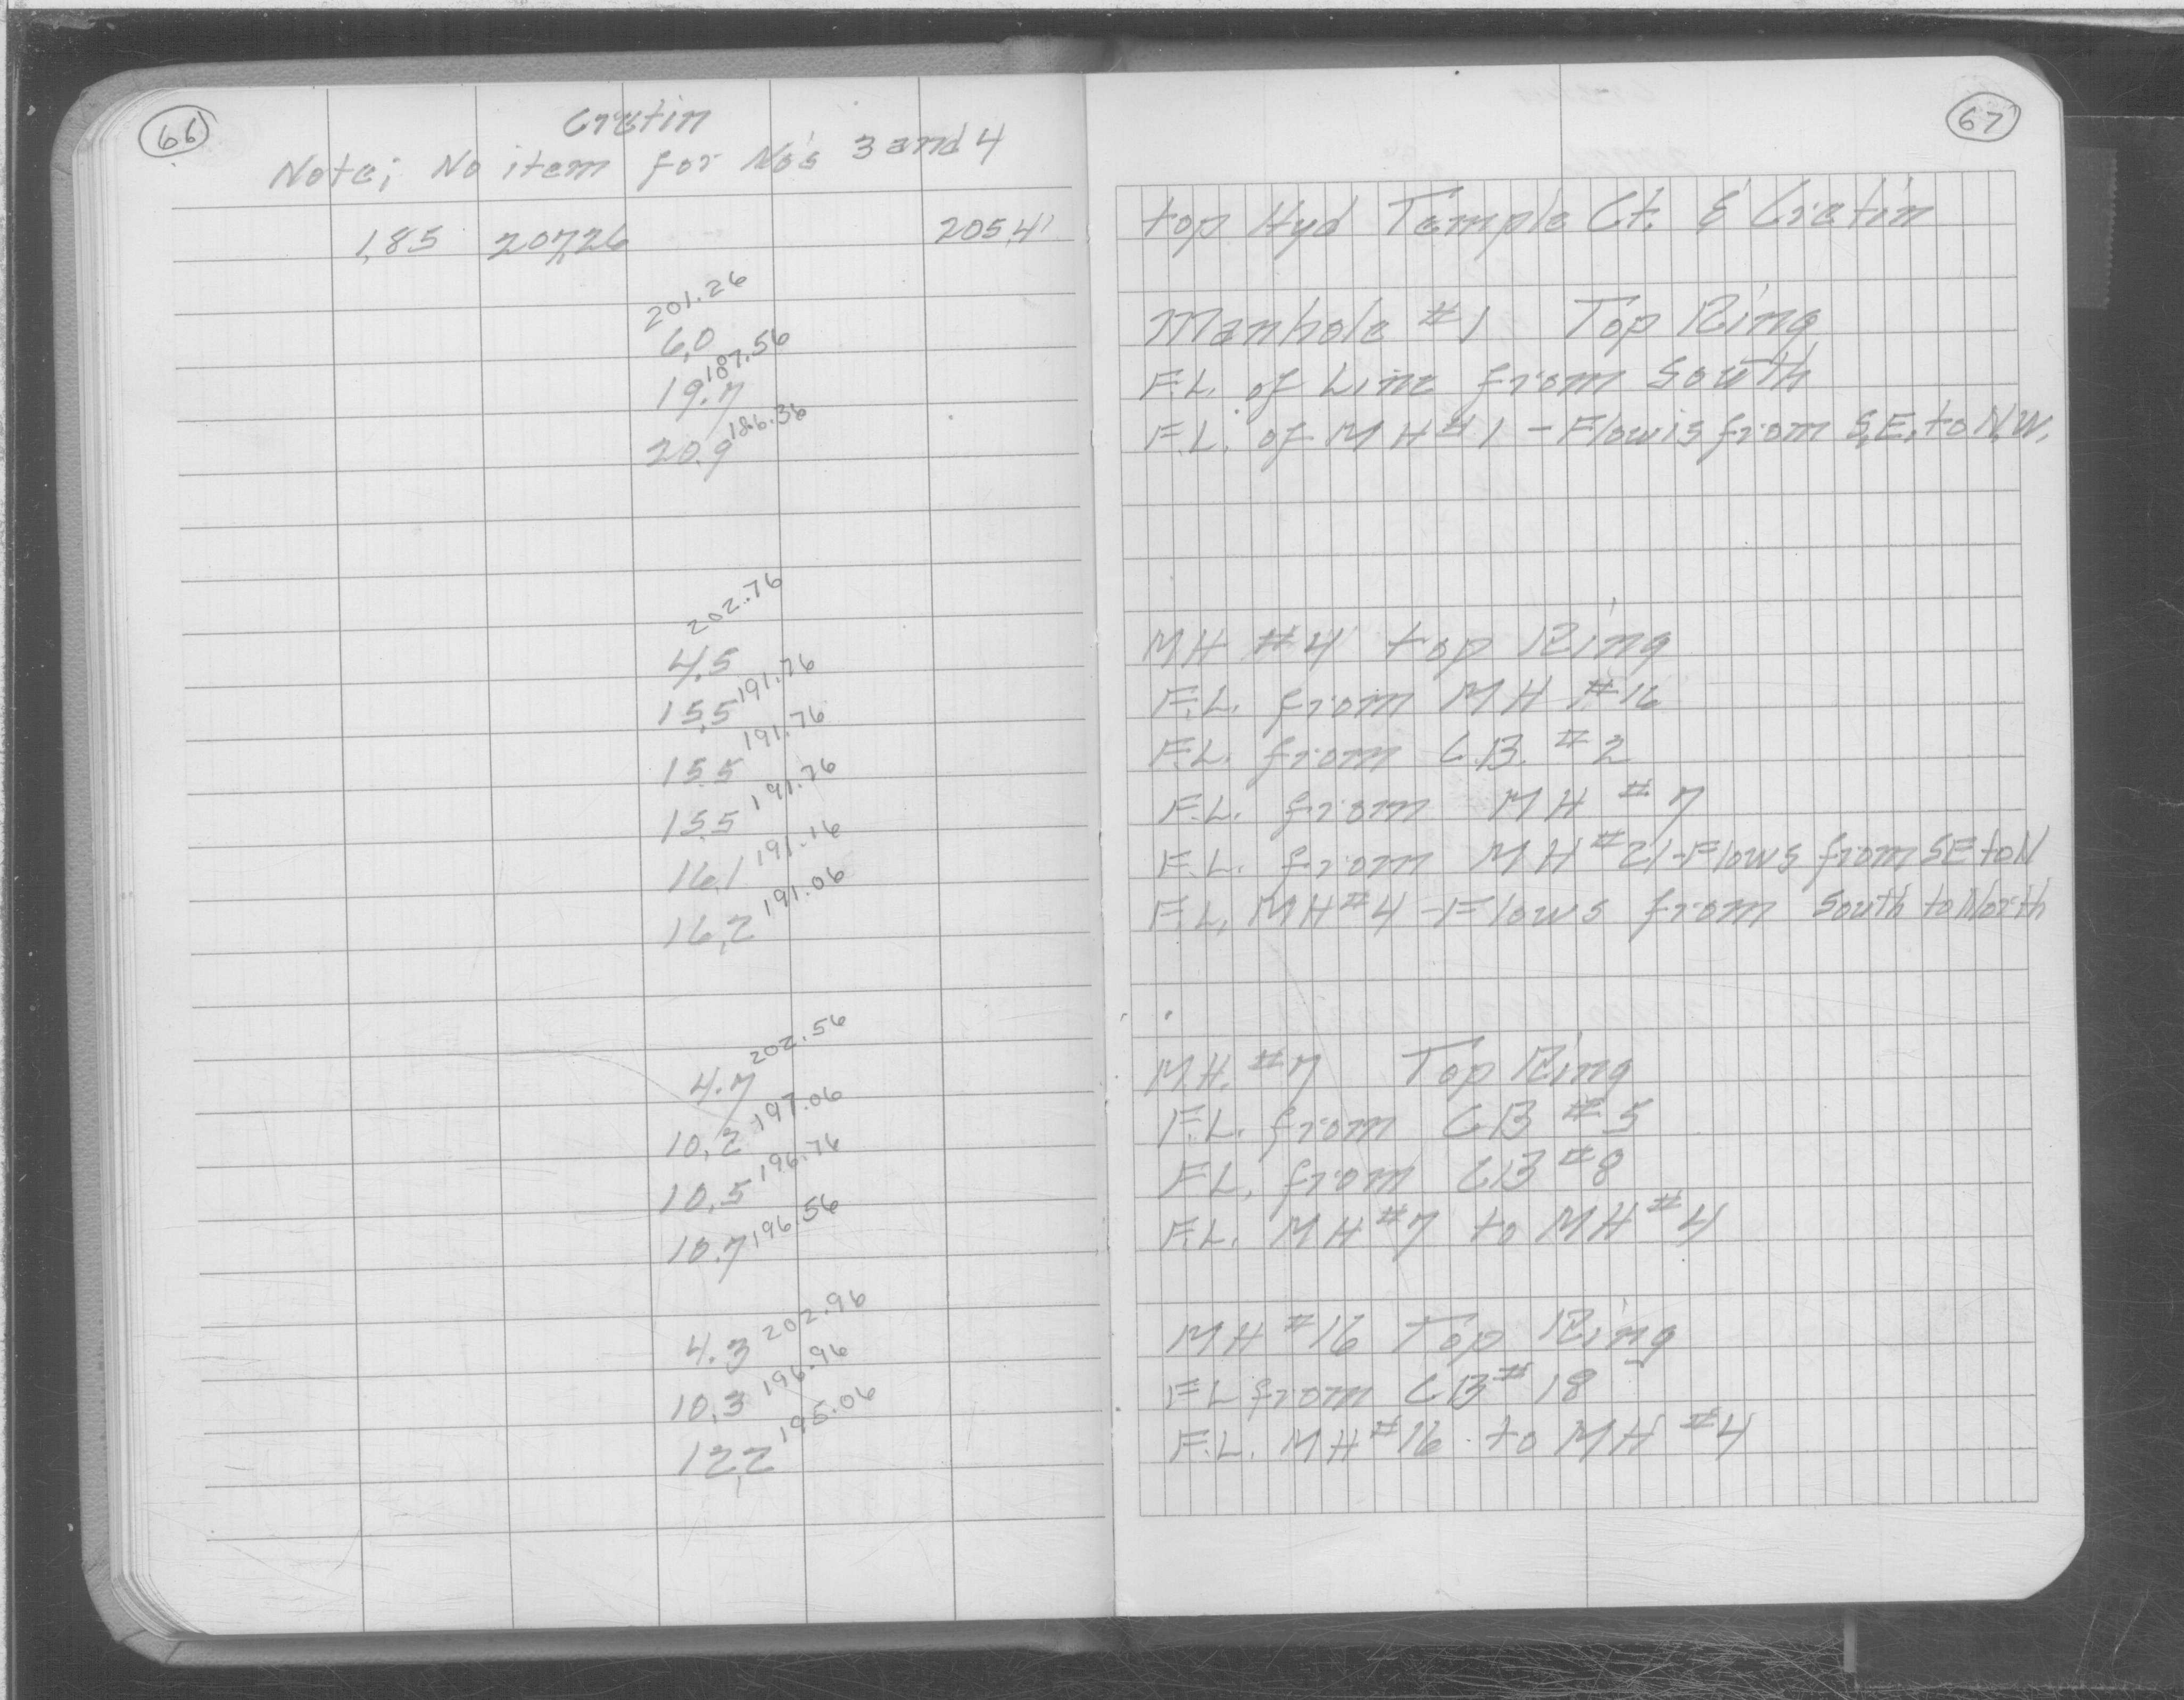 66
Cretin
Note; No item for No's 3 and 4
1.85 207.26 205.41
201.26
6.0
187.56
19.7
186.36
20.9
202.76
4.5
191.76
15.5
191.76
15.5
191.76
15.5
191.16
16.1
191.06
16.2
202.56
4.7
197.06
10.2
196.76
10.5
196.56
10.7
202.96
4.3
196.96
10.3
195.06
12.2
67
top Hyd Temple Ct. & Cretin
Manhole #1 Top Ring
F.L. of Line from South
F.L. of MH #1 - Flow is from S.E. to N.W.
MH #4 top Ring
F.L. from MH #16
F.L. from C.B. #2
F.L. from MH #7
F.L. from MH #21 - Flows from SE to N
F.L. MH #4 - Flows from South to North
M.H. #7 Top Ring
F.L. from CB #5
FL. from CB #8
F.L. MH #7 to MH #4
MH #16 Top Ring
FL from CB #18
F.L. MH #16 to MH #4